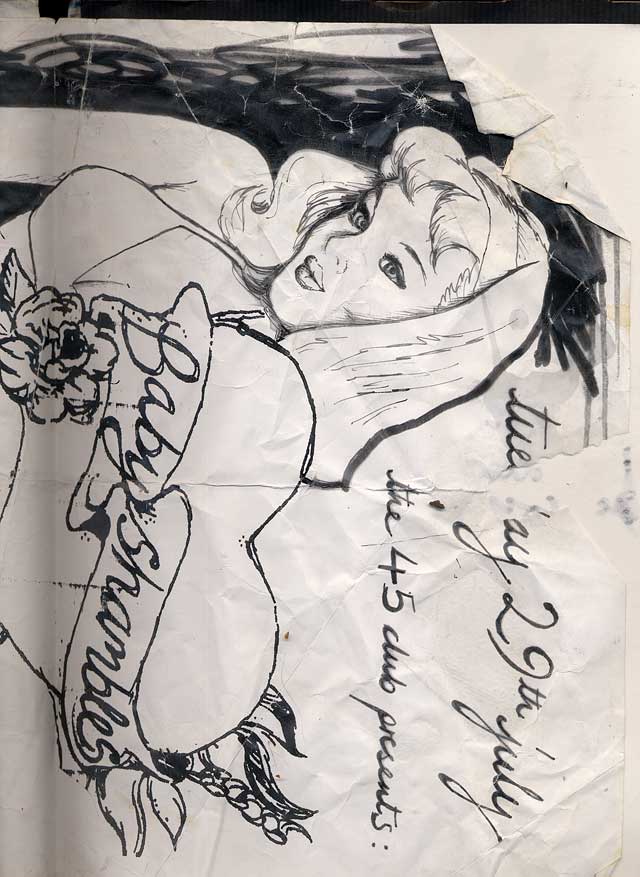 tue ay 29th july
the 45 club presents:
Babyshambles